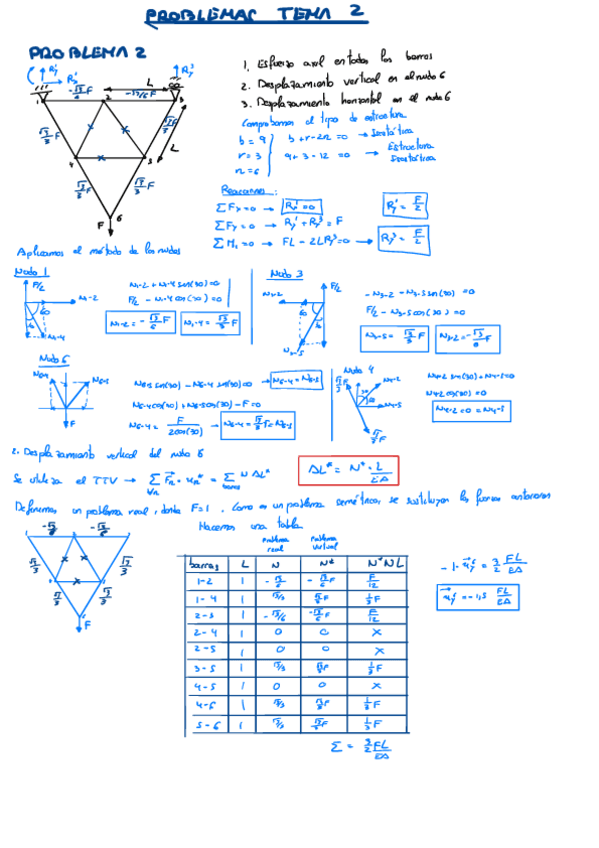 PROBLEMAS TEMA 2
PROBLEMA 2
1. Esfuerzo axil en todas las barras
2. Desplazamiento vertical en el nudo 6
3. Desplazamiento horizontal en el nudo 6
Comprobamos el tipo de estructura
b = 9
r = 3
n = 6
b + r - 2n = 0 → Isostática
9 + 3 - 12 = 0 → Estructura Isostática
Reacciones:
ΣFx = 0 → Rx¹ = 0
ΣFy = 0 → Ry¹ + Ry³ = F
ΣM1 = 0 → FL - 2LRy³ = 0 → Ry³ = F/2
Ry¹ = F/2
Aplicamos el método de los nudos
Nudo 1
F/2
N1-2
N1-4
N1-2 + N1-4 sen(30) = 0
F/2 - N1-4 cos(30) = 0
N1-2 = -√3/6 F
N1-4 = √3/3 F
Nudo 3
F/2
-N3-2 - N3-5 sen(30) = 0
F/2 - N3-5 cos(30) = 0
N3-5 = √3/3 F
N3-2 = -√3/6 F
Nudo 6
N6-4
N6-5
F
N6-5 sen(30) - N6-4 sen(30) = 0 → N6-4 = N6-5
N6-4 cos(30) + N6-5 cos(30) - F = 0
N6-4 = F/2cos(30) → N6-4 = √3/3 F = N6-5
Nudo 4
N4-2
N4-5
N4-2 sen(30) + N4-5 = 0
N4-2 cos(30) = 0
N4-2 = 0 = N4-5
2. Desplazamiento vertical del nudo 6
Se utiliza el TTV → Σ Fn · un* = Σ N ΔL*
ΔL* = N* · L / EA
Definimos un problema real, donde F = 1. Como es un problema simétrico, se sustituyen las fuerzas anteriores
Hacemos una tabla
Problema real
Problema virtual
barras L N N* N*NL
1-2 1 -√3/6 -√3/6 F F/12
1-4 1 √3/3 √3/3 F 1/3 F
2-3 1 -√3/6 -√3/6 F F/12
2-4 1 0 0 X
2-5 1 0 0 X
3-5 1 √3/3 √3/3 F 1/3 F
4-5 1 0 0 X
4-6 1 √3/3 √3/3 F 1/3 F
5-6 1 √3/3 √3/3 F 1/3 F
Σ = 3/2 FL/EA
-1 · uy⁶ = 3/2 FL/EA
uy⁶ = -1,5 FL/EA